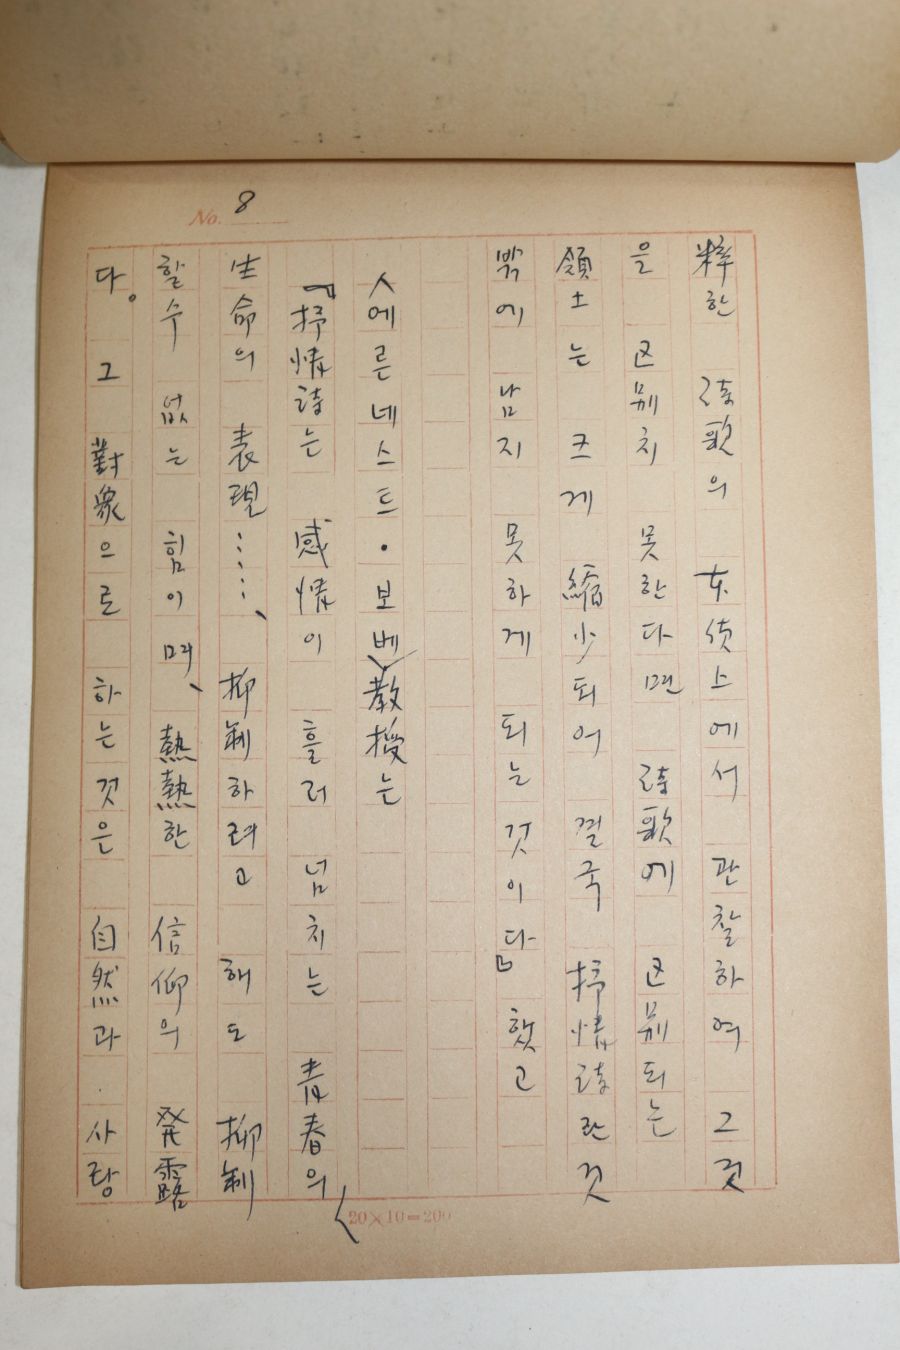 No. 8
粹한 詩歌의 本질上에서 관찰하여 그것
을 区別치 못한다면 詩歌에 区別되는
領土는 크게 縮少되여 결국 抒情詩란 것
밖에 남지 못하게 되는 것이다』 했고
人에른네스트·보베 敎授는
『抒情詩는 感情이 흘러 넘치는 靑春의
生命의 表現……、抑制하려고 해도 抑制
할수 없는 힘이며、熱熱한 信仰의 発露
다。그 對象으로 하는것은 自然과 사랑
20×10=200